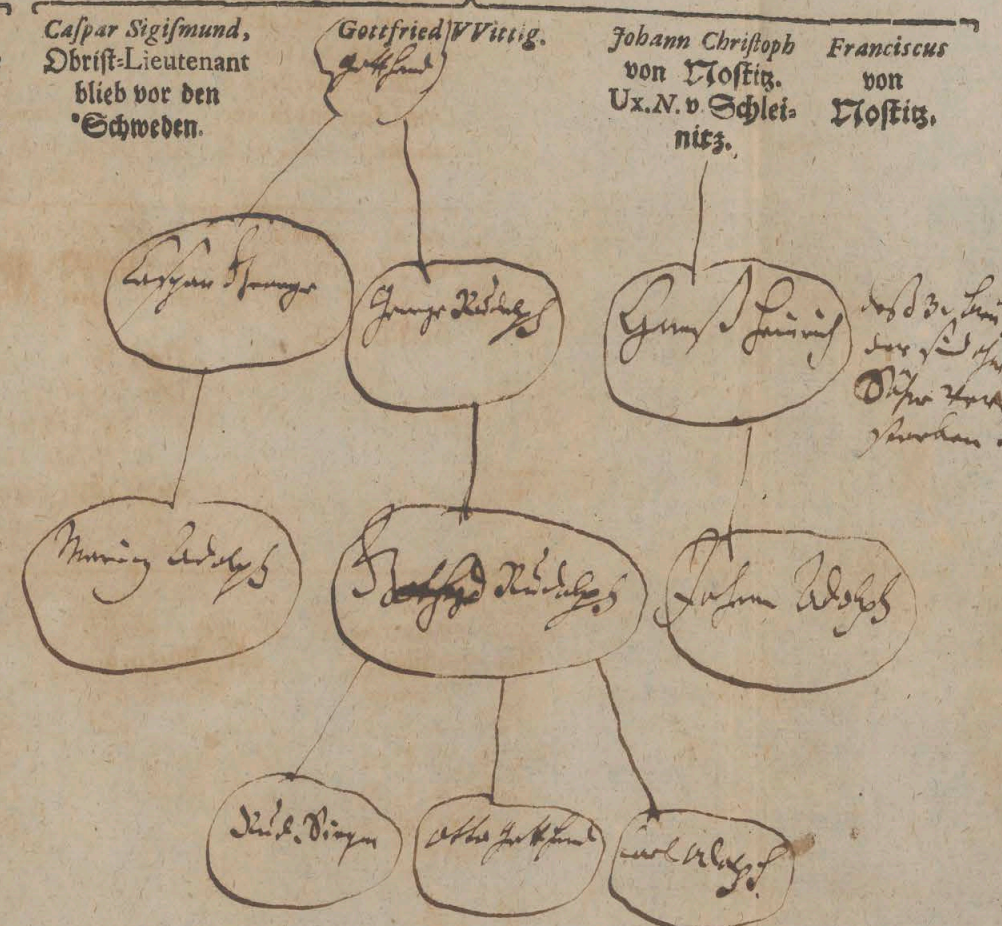 Caſpar Sigiſmund,
Obriſt-Lieutenant
blieb vor den
Schweden.
Gottfried VVittig.
Gotthard
Johann Chriſtoph
von Noſtitz.
Ux. N. v. Schlei-
nitz.
Franciscus
von
Noſtitz.
Caſpar George
George Rudolph
Hanß Heinrich
deß 3. Brü
der ſind ohne
Söhne ver
storben
Moritz Adolph
Rudolph
Johann Adolph
Rud. Sigm
Otto Gotthard
Carl Adolph